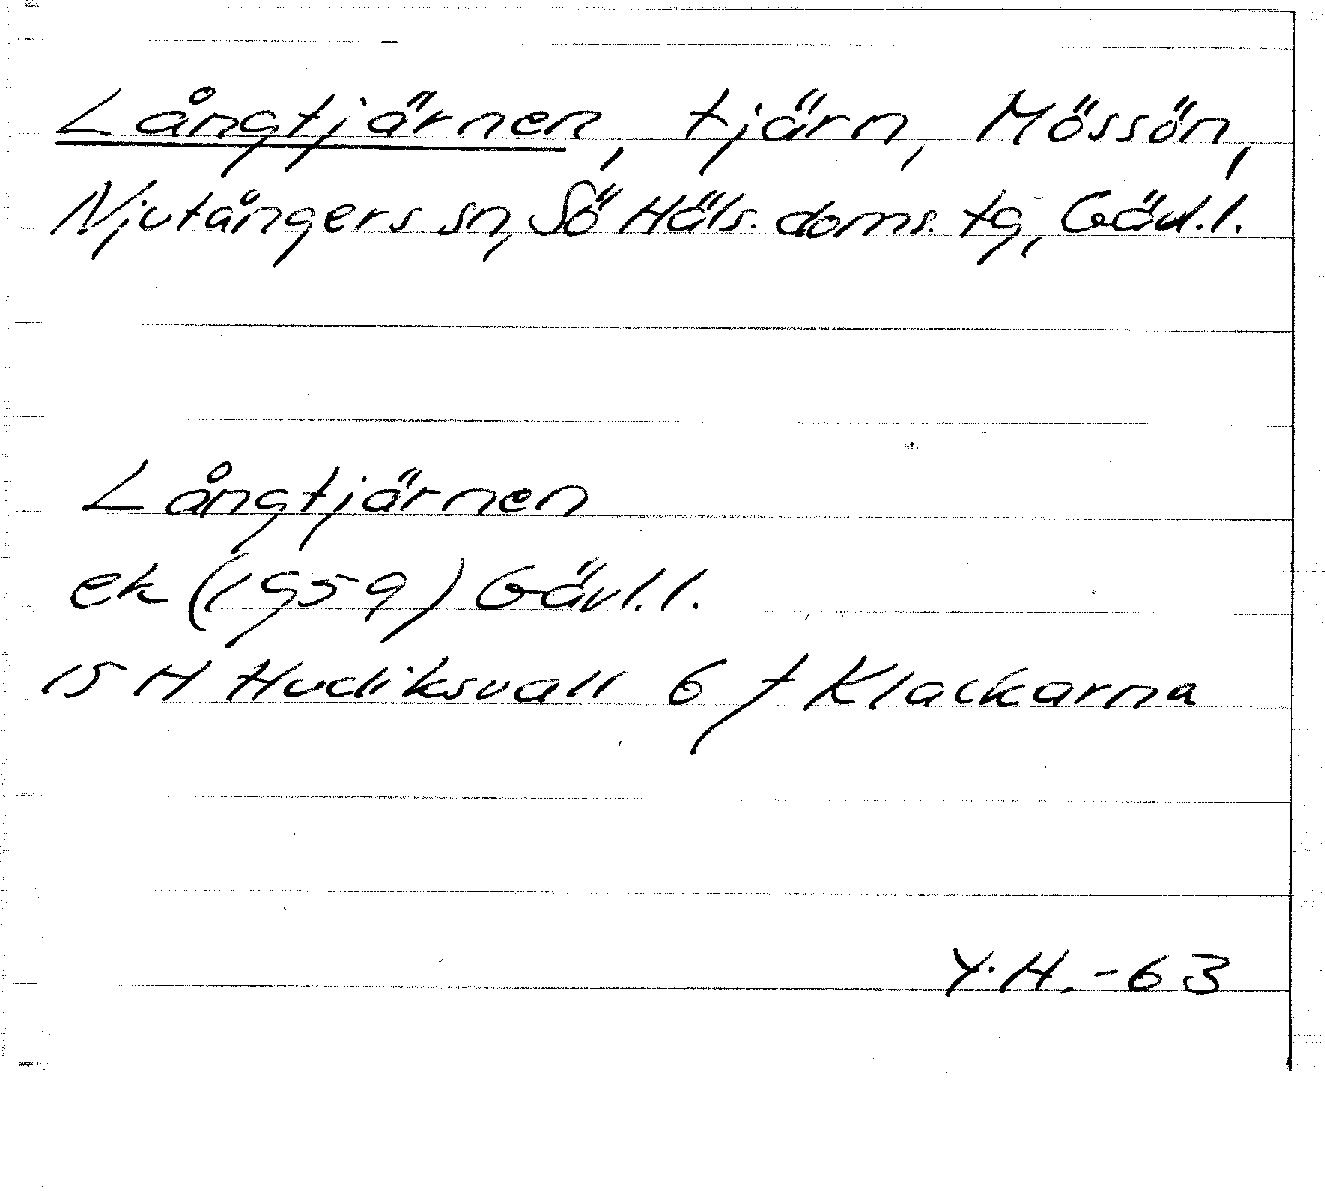 Långtjärnen, tjärn, Mössön,
Njutångers sn, Sö Häls. doms. tg, Gävl.l.
Långtjärnen
ek (1959) Gävl.l.
15 H Hudiksvall 6 f Klackarna
Y.H. -63